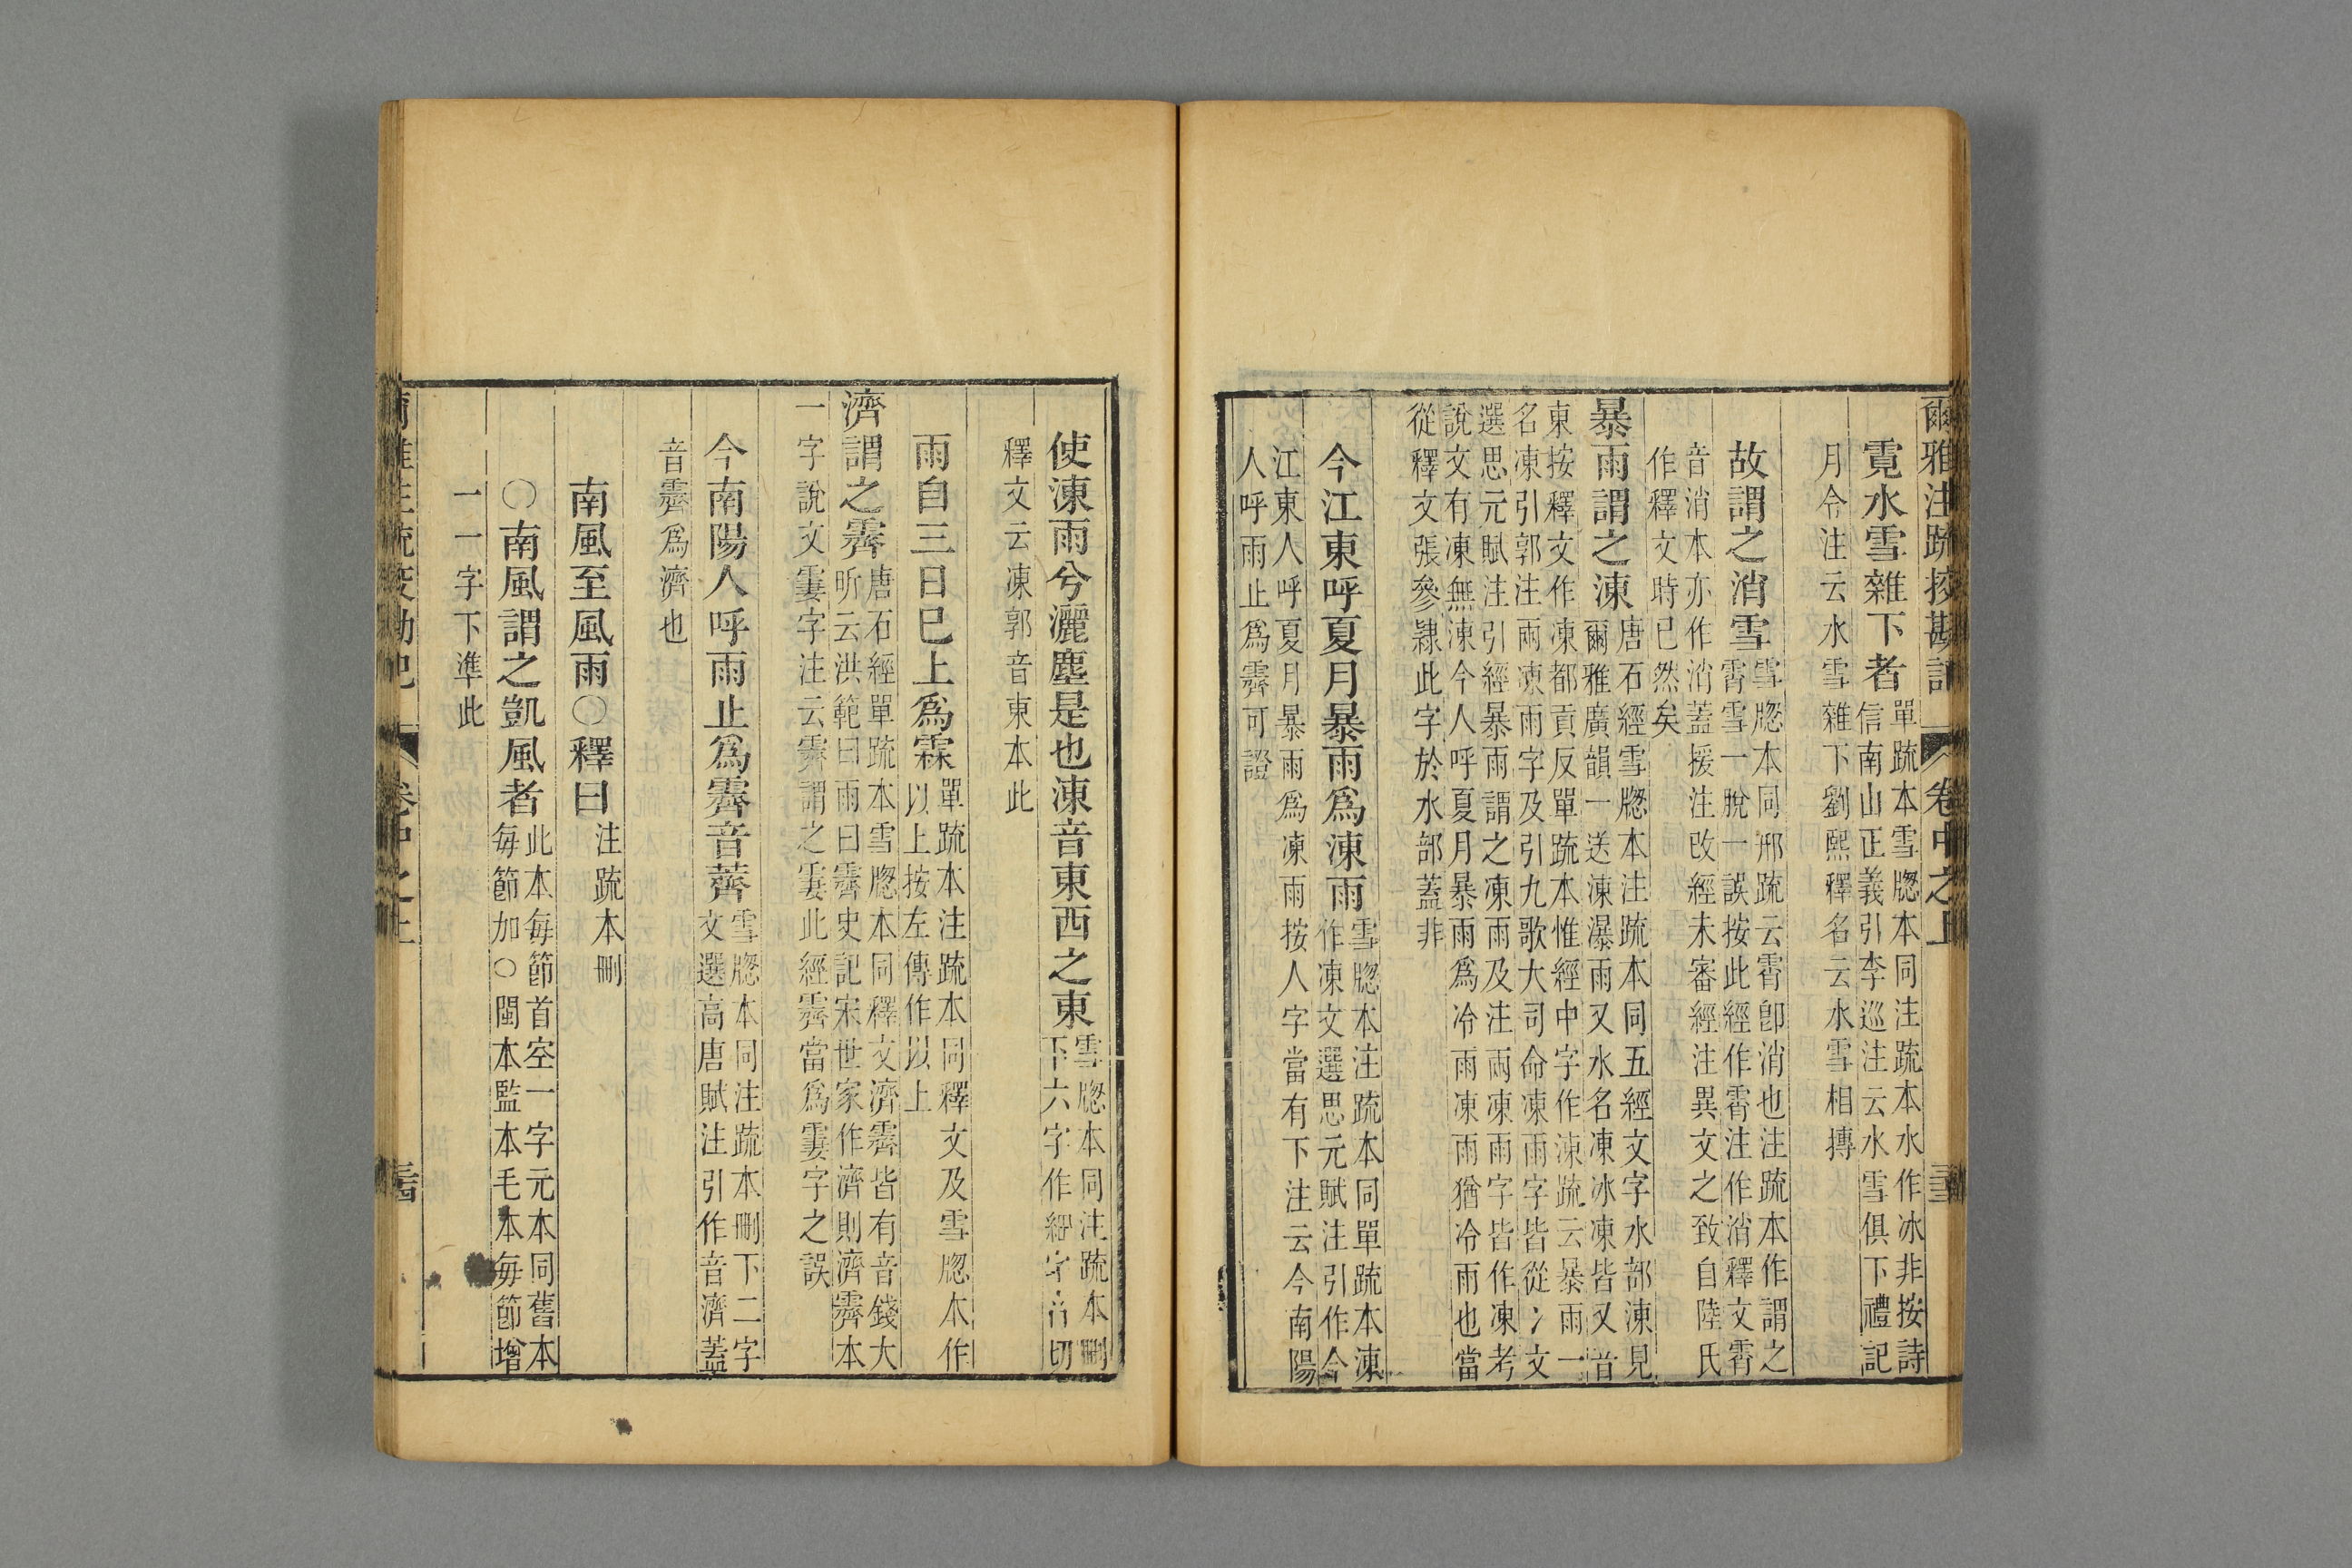 爾雅注疏挍勘記 卷中之上 三
霓水雪雜下者單疏本雪牕本同注疏本水作冰非按詩
信南山正義引李巡注云水雪俱下禮記
月令注云水雪雜下劉熙釋名云水雪相摶
故謂之消雪雪牕本同邢疏云霄卽消也注疏本作謂之
霄雪一脫一誤按此經作霄注作消釋文霄
音消本亦作消蓋援注改經未審經注異文之致自陸氏
作釋文時已然矣
暴雨謂之涷唐石經雪牕本注疏本同五經文字水部涷見
爾雅廣韻一送涷瀑雨又水名凍冰凍皆又音
東按釋文作凍都貢反單疏本惟經中字作涷疏云暴雨一
名凍引郭注雨凍雨字及引九歌大司命凍雨字皆從冫文
選思元賦注引經暴雨謂之凍雨及注雨凍雨字皆作凍考
說文有凍無涷今人呼夏月暴雨爲冷雨凍雨猶冷雨也當
從釋文張參隸此字於水部蓋非
今江東呼夏月暴雨爲涷雨雪牕本注疏本同單疏本涷
作凍文選思元賦注引作今
江東人呼夏月暴雨爲凍雨按人字當有下注云今南陽
人呼雨止爲霽可證
使涷雨兮灑塵是也涷音東西之東雪牕本同注疏本刪
下六字作細字音切
釋文云凍郭音東本此
雨自三日巳上爲霖單疏本注疏本同釋文及雪牕本作
以上按左傳作以上
濟謂之霽唐石經單疏本雪牕本同釋文濟霽皆有音錢大
昕云洪範曰雨曰霽史記宋世家作濟則濟霽本
一字說文霋字注云霽謂之霋此經霽當爲霋字之誤
今南陽人呼雨止爲霽音薺雪牕本同注疏本刪下二字
文選高唐賦注引作音濟蓋
音霽爲濟也
南風至風雨○釋曰注疏本刪
○南風謂之凱風者此本每節首空一字元本同舊本
每節加○閩本監本毛本每節增
一一字下準此
爾雅注疏挍勘記 卷中之上